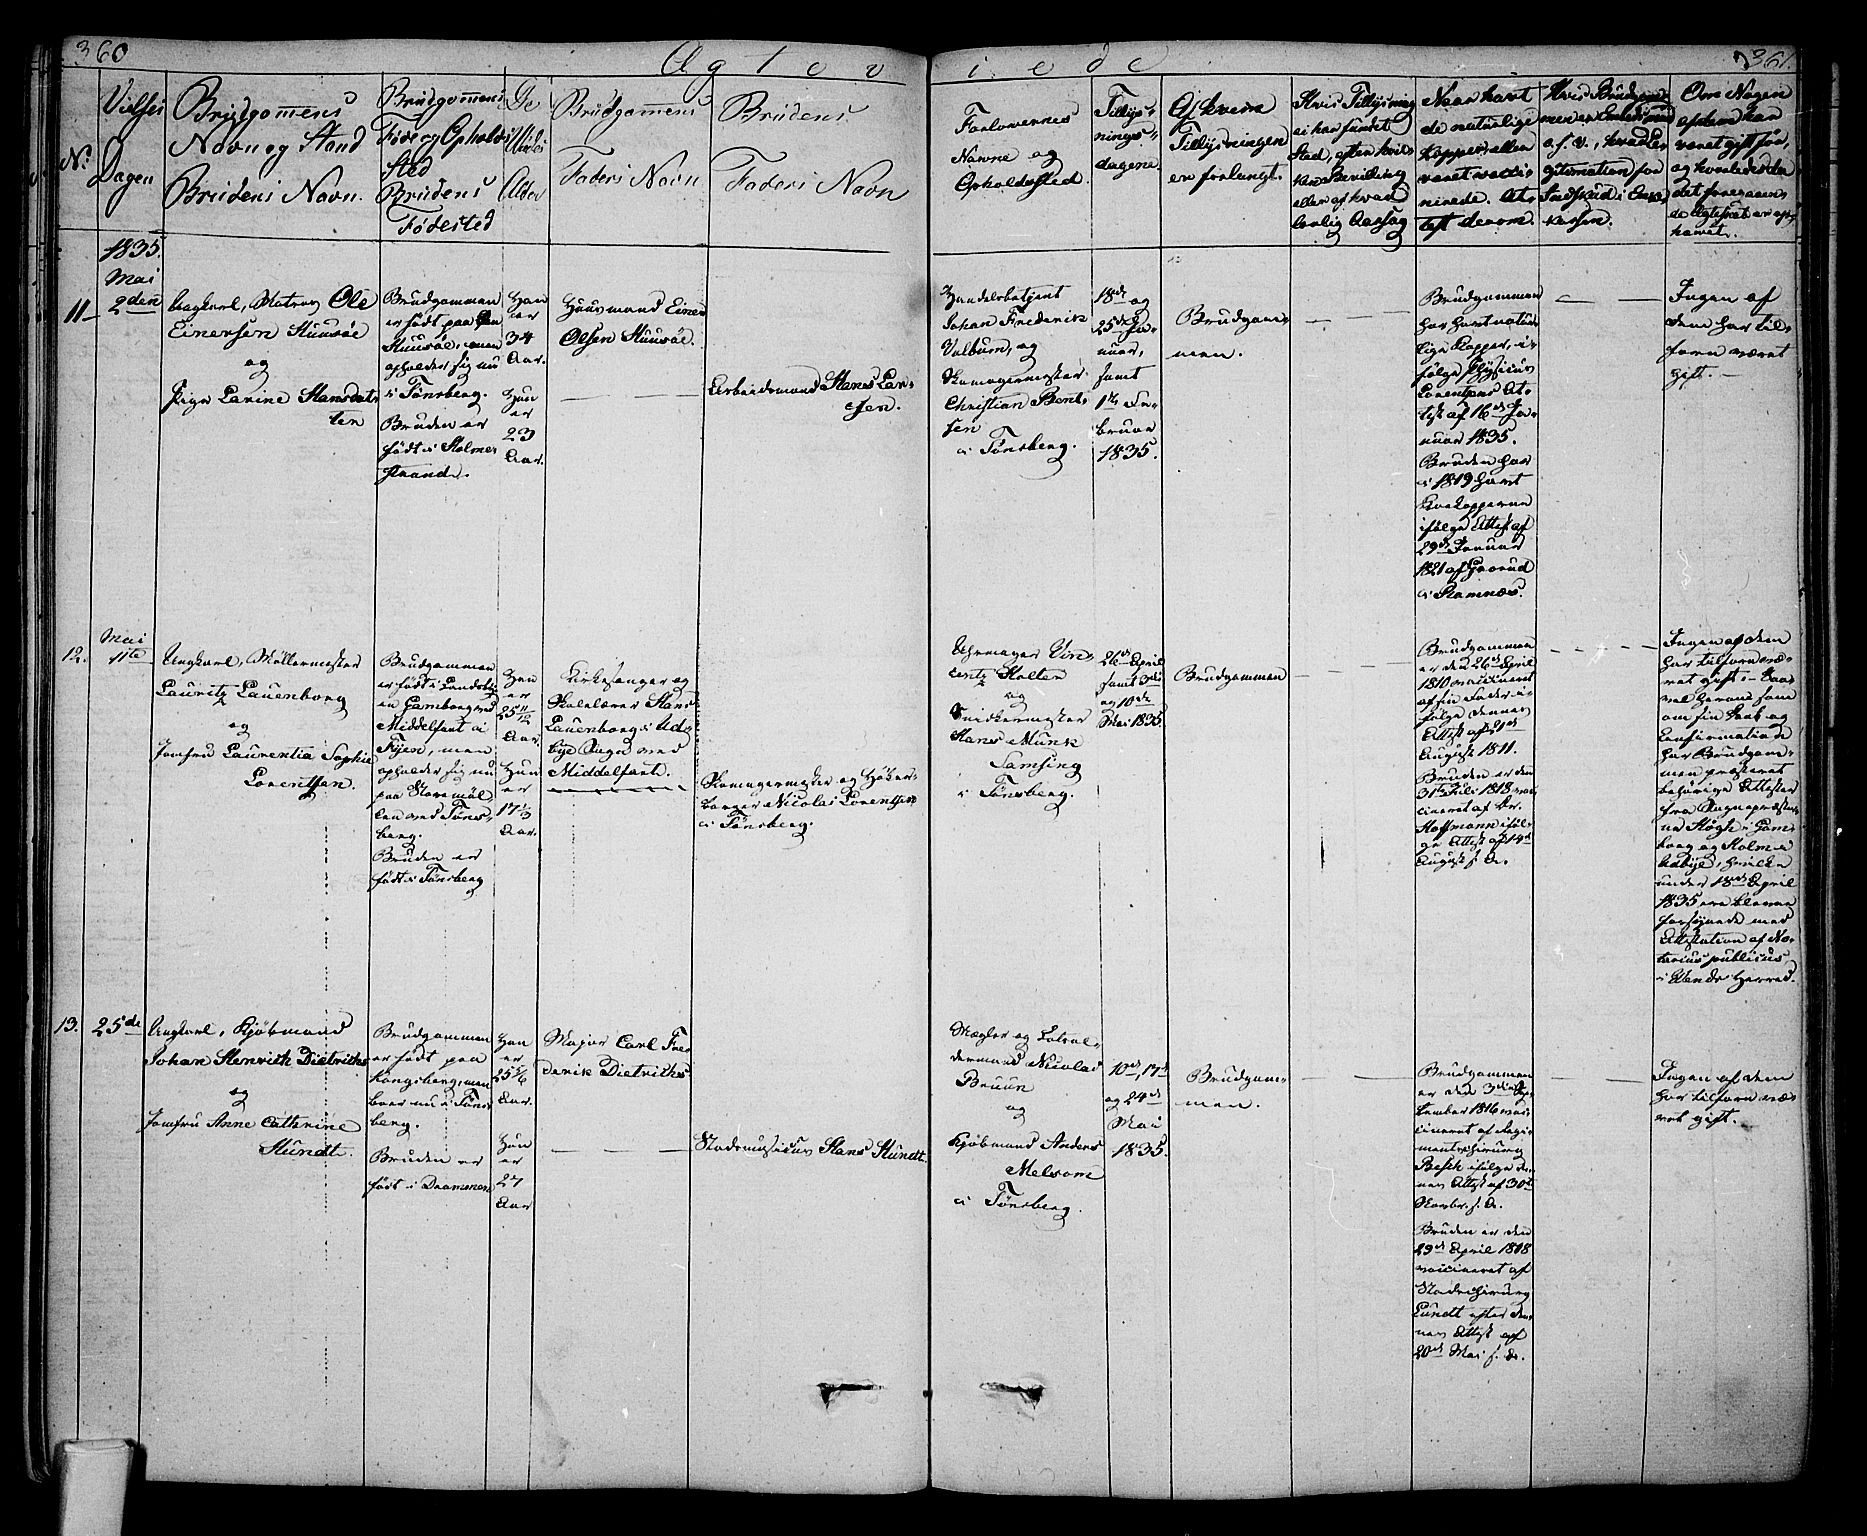 360
361.
Ægtev
iede
No
Vielses
Dagen
Brudgommens
Navn og Stand
Brudens Navn.
Brudgommens
Føde og Opholds
Sted
Brudens
Fødested
De
Viedes
Alder
Brudgommens
Faders Navn.
Brudens
Faders Navn
Forlovernes
Navne og
Opholdssted.
Tillys-
nings-
dagene.
Af hvem
Tillysningen
er forlangt.
Hvis Tillysning
ei har fundet
Sted, efter hvil-
ken Bevilling
eller af hvad
lovlig Aarsag
Naar havt
de naturlige
Kopper, eller
været vacci-
nerede. At-
test derom.
Hvis Brudgom-
men er
o.s.v., hvad Le-
gitimation for
Indskud i Enke-
kassen.
Om Nogen
af dem har
været gift før,
og hvorledes da
det foregaaen-
de Ægteskab er op-
hævet.
1835.
Mai
11
2den
Ungkarl, Matros Ole
Einersen Huusøe
og
Pige Larine Hansdat-
ter
Brudgommen
er født paa
Huusøe, men
opholder sig nu
i Tønsberg.
Bruden er
født i Holme-
strand.
Han
er
34
Aar.
Hun
er
23
Aar.
Huusmand Einer
Olsen Huusøe.
Arbeidsmand Hans Lar-
sen.
Handelsbetjent
Johan Frederik
Valbum, og
Skomagermester
Christian Bent-
sen
i Tønsberg.
18de og
25de Ja-
nuar,
samt
1te Fe-
bruar
1835.
Brudgom-
men.
Brudgommen
har havt natur-
lige Kopper, i-
følge Physicus
Lorentzens At-
test af 16de Ja-
nuar 1835.
Bruden har
i 1819 havt
Kokopperne
ifølge Attest af
29de Januar
1821 af Grorud
i Hamnæs.
Ingen af
dem har til-
forn været
gift.
12.
Mai
11te
Ungkarl, Møllermester
Lauritz Lauenborg
og
Jomfru Laurentia Sophie
Lorentzen.
Brudgommen
er født i Landsby-
en Gamborg ved
Middelfart i
Fyen, men
opholder sig nu
paa Storemøl-
len ved Tøns-
berg.
Bruden er
født i Tønsberg
Han
er
25 11/12
Aar.
Hun
er
17 1/3
Aar.
Kirkesanger og
Skolelærer Hans
Lauenborg i Ud-
bye Sogn ved
Middelfart.
Skomagermester og Høker-
borger Nicolai Lorentzen
i Tønsberg.
Uhrmager Vin-
centz Holter
og
Snedkermester
Hans Munk
Samsing
i Tønsberg.
26de April
samt 3die
og 10de
Mai 1835.
Brudgommen
Brudgommen
er den 26de April
1810 vaccineret
af sin Fader i-
følge dennes
Attest af 21de
August 1811.
Bruden er den
31te Juli 1818 vac-
cineret af Dr.
Hoffmann iføl-
ge Attest af 14de
August s. A.
Ingen af dem
har tilforn væ-
ret gift. - Saa-
vel herom som
om sin Daab og
Confirmation
har Brudgom-
men præsteret
behørige Attester
fra Sognepræster-
ne Høgh i Gam-
borg og Holm i
Udbye, hvilke
under 18de April
1835 ere blevne
forsynede med
Attestation af No-
tarius publicus
i Vends Herred.
13.
25de
Ungkarl, Kjøbmand
Johan Henrich Dietrichs
og
Jomfru Anne Cathrine
Hundt.
Brudgommen
er født paa
Kongsberg, men
boer nu i Tøns-
berg.
Bruden er
født i Drammen
Han
er
25 5/6
Aar.
Hun
er
27
Aar
Major Carl Fre-
derik Dietrichs
Stadsmusicus Hans Hundt.
Mægler og Lotsol-
dermand Nicolai
Bruun
og
Kjøbmand Anders
Melsom
i Tønsberg.
10de, 17de
og 24de
Mai
1835.
Brudgom-
men.
Brudgommen
er den 3die Sep-
tember 1816 vac-
cineret af Regi-
mentschirurg
Besch ifølge den-
nes Attest af 30te
Novbr. s. A.
Bruden er den
29de April 1808
vaccineret af
Stadschirurg
Lundt efter den-
nes Attest af
20de Mai s. A.
Ingen af dem
har tilforn væ-
ret gift.